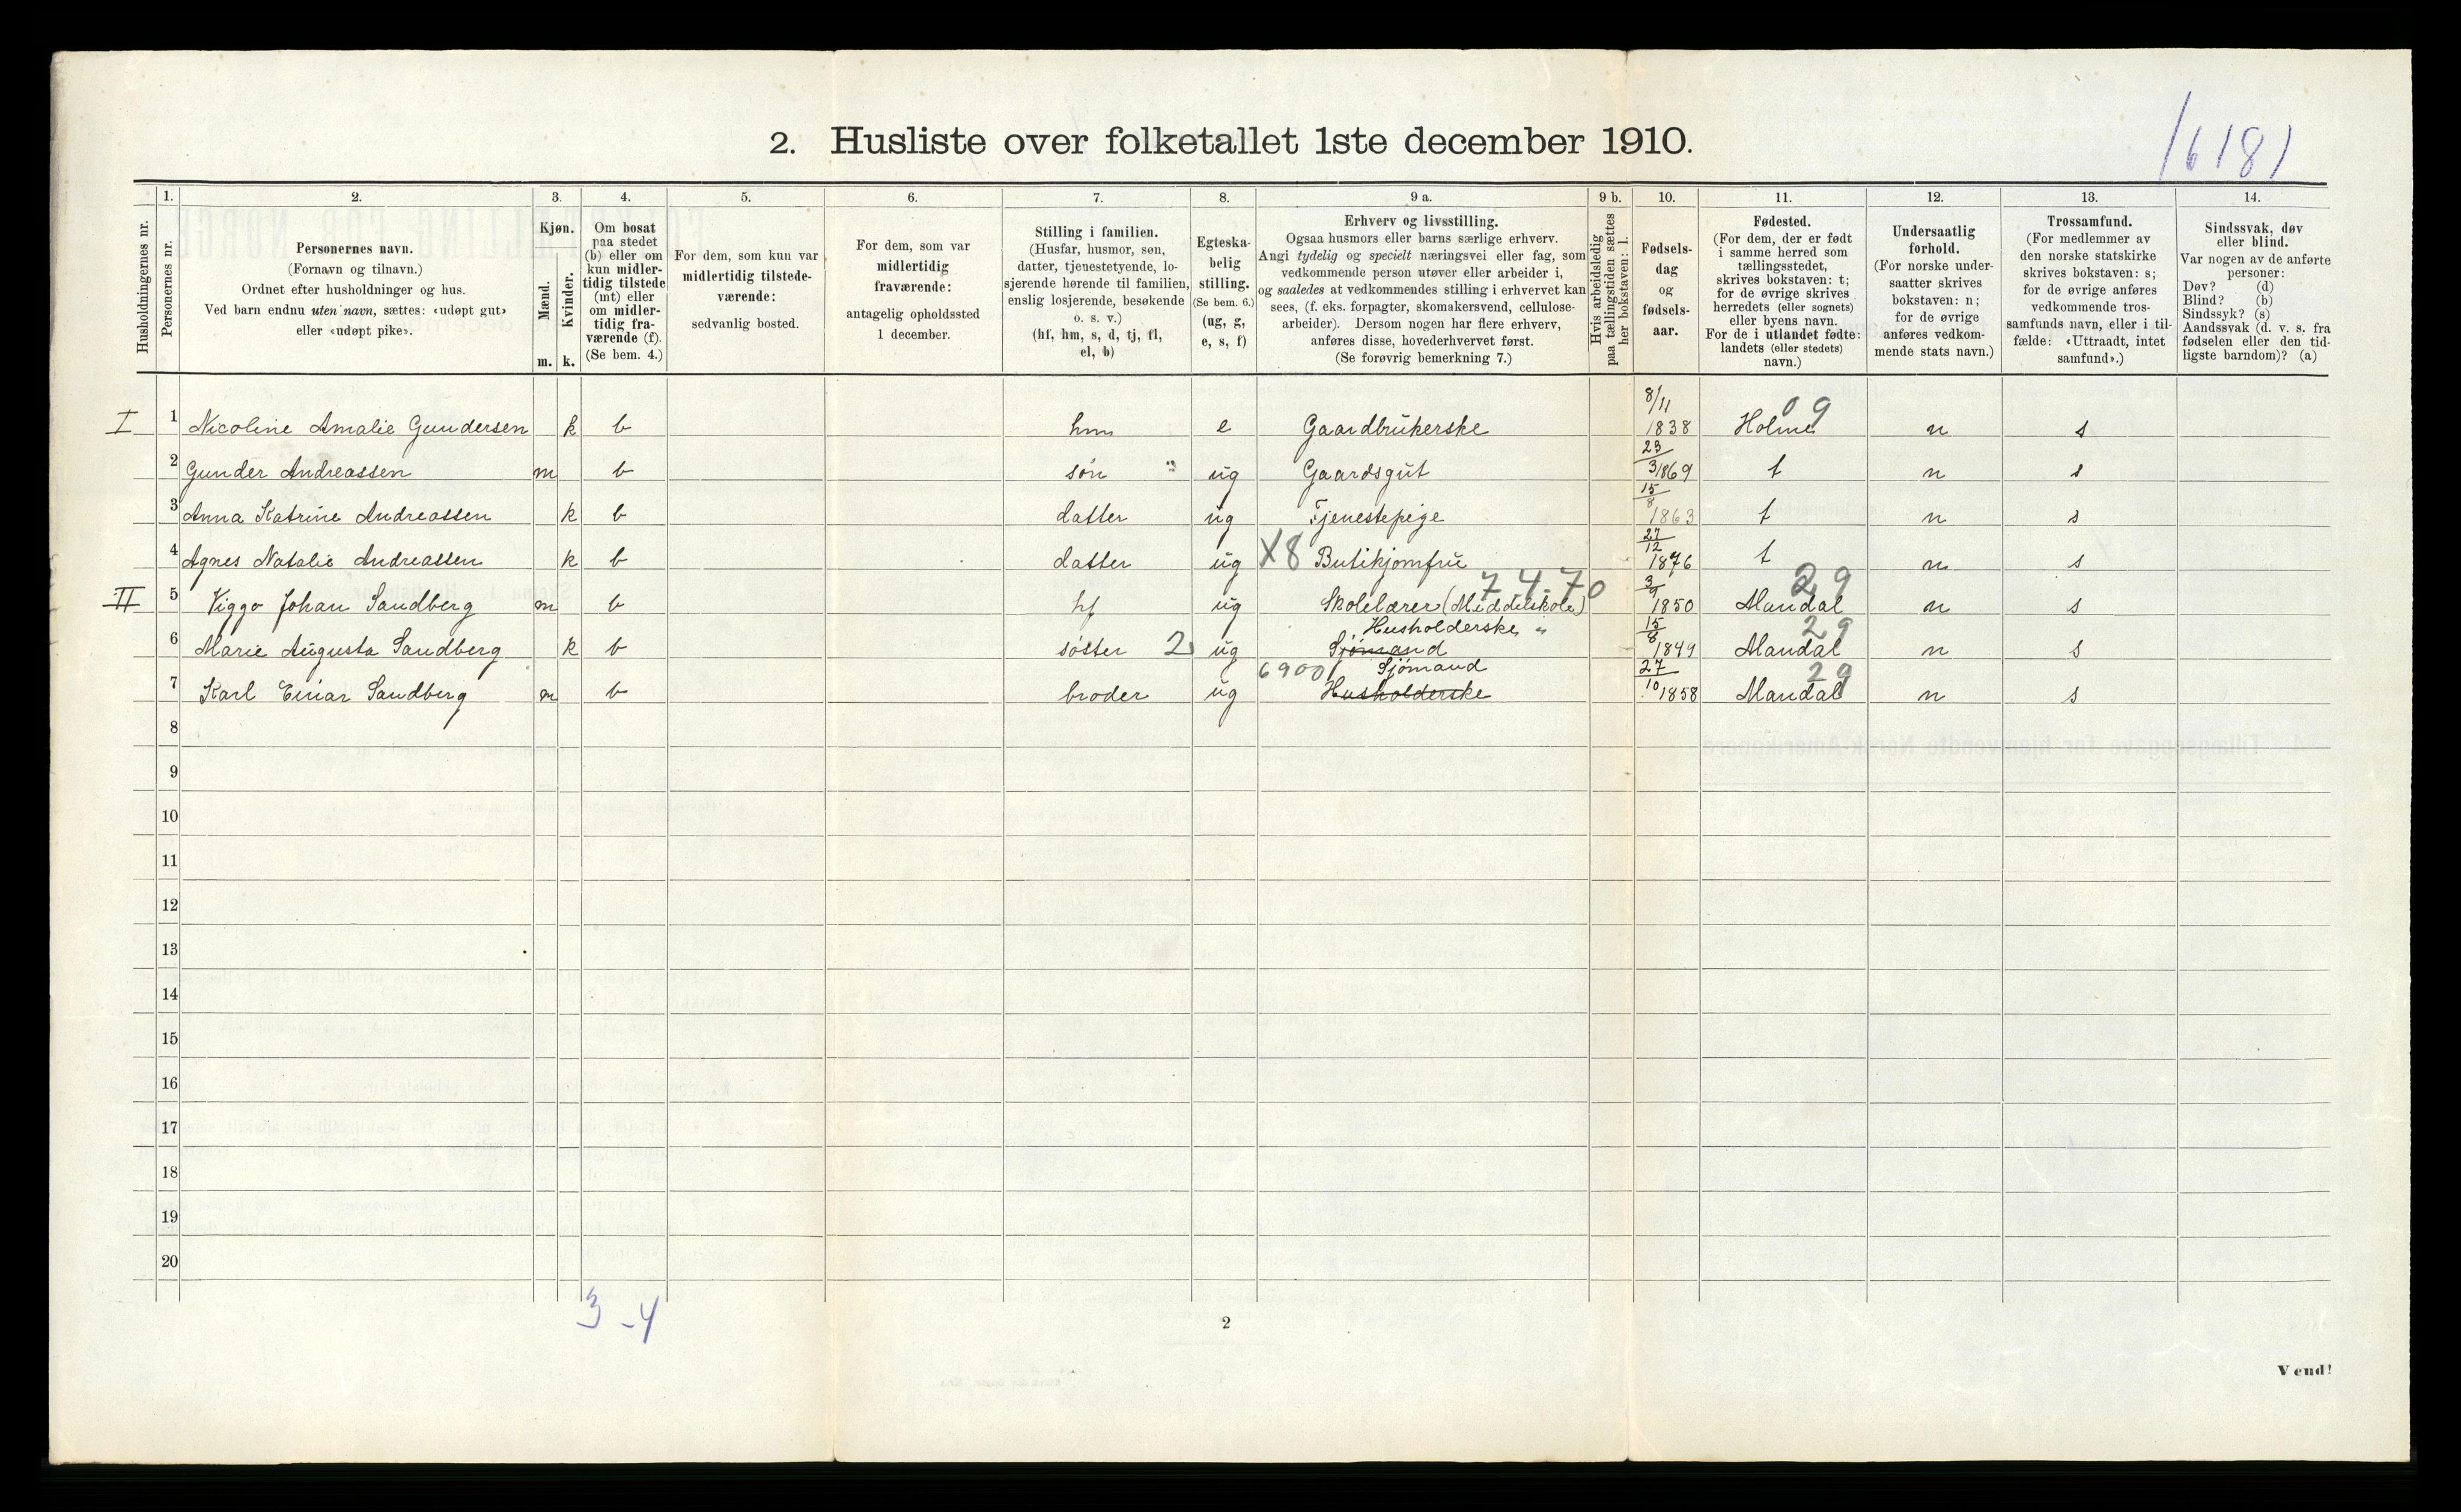 16181
2. Husliste over folketallet 1ste december 1910.
Husholdningernes nr.
1.
Personernes nr.
2.
Personernes navn.
(Fornavn og tilnavn.)
Ordnet efter husholdninger og hus.
Ved barn endnu uten navn, sættes: «udøpt gut»
eller «udøpt pike».
3.
Kjøn.
Mænd.
Kvinder.
m. k.
4.
Om bosat
paa stedet
(b) eller om
kun midler-
tidig tilstede
(mt) eller
om midler-
tidig fra-
værende (f).
(Se bem. 4.)
5.
For dem, som kun var
midlertidig tilstede-
værende:
sedvanlig bosted.
6.
For dem, som var
midlertidig
fraværende:
antagelig opholdssted
1 december.
7.
Stilling i familien.
(Husfar, husmor, søn,
datter, tjenestetyende, lo-
sjerende hørende til familien,
enslig losjerende, besøkende
o. s. v.)
(hf, hm, s, d, tj, fl,
el, b)
8.
Egteska-
belig
stilling.
(Se bem. 6.)
(ug, g,
e, s, f)
9 a.
Erhverv og livsstilling.
Ogsaa husmors eller barns særlige erhverv.
Angi tydelig og specielt næringsvei eller fag, som
vedkommende person utøver eller arbeider i,
og saaledes at vedkommendes stilling i erhvervet kan
sees, (f. eks. forpagter, skomakersvend, cellulose-
arbeider). Dersom nogen har flere erhverv,
anføres disse, hovederhvervet først.
(Se forøvrig bemerkning 7.)
9 b.
Hvis arbeidsledig
paa tællingstiden sættes
her bokstaven: l.
10.
Fødsels-
dag
og
fødsels-
aar.
11.
Fødested.
(For dem, der er født
i samme herred som
tællingsstedet,
skrives bokstaven: t;
for de øvrige skrives
herredets (eller sognets)
eller byens navn.
For de i utlandet fødte:
landets (eller stedets)
navn.)
12.
Undersaatlig
forhold.
(For norske under-
saatter skrives
bokstaven: n;
for de øvrige
anføres vedkom-
mende stats navn.)
13.
Trossamfund.
(For medlemmer av
den norske statskirke
skrives bokstaven: s;
for de øvrige anføres
vedkommende tros-
samfunds navn, eller i til-
fælde: «Uttraadt, intet
samfund».)
14.
Sindssvak, døv
eller blind.
Var nogen av de anførte
personer:
Døv? (d)
Blind? (b)
Sindssyk? (s)
Aandssvak (d. v. s. fra
fødselen eller den tid-
ligste barndom)? (a)
I 1 Nicoline Amalie Gundersen k b hm e Gaardbrukerske 8/11 1838 Holme 09 n s
2 Gunder Andreassen m b søn ug Gaardsgut 23/3 1869 t n s
3 Anna Katrine Andreassen k b datter ug Tjenestepige 15/8 1863 t n s
4 Agnes Natalie Andreassen k b datter ug X8 Butikjomfru 27/12 1876 t n s
II 5 Viggo Johan Sandberg m b hf ug Skolelærer (Middelskole) 7 4.70 3/9 1850 Mandal 29 n s
6 Marie Augusta Sandberg k b søster 2 ug Husholderske Sjømand 15/8 1849 Mandal 29 n s
7 Karl Einar Sandberg m b broder ug 6900 Sjømand Husholderske 27/10 1858 Mandal 29 n s
8
9
10
11
12
13
14
15
16
17
18
19
20
3 - 4
2
Vend!